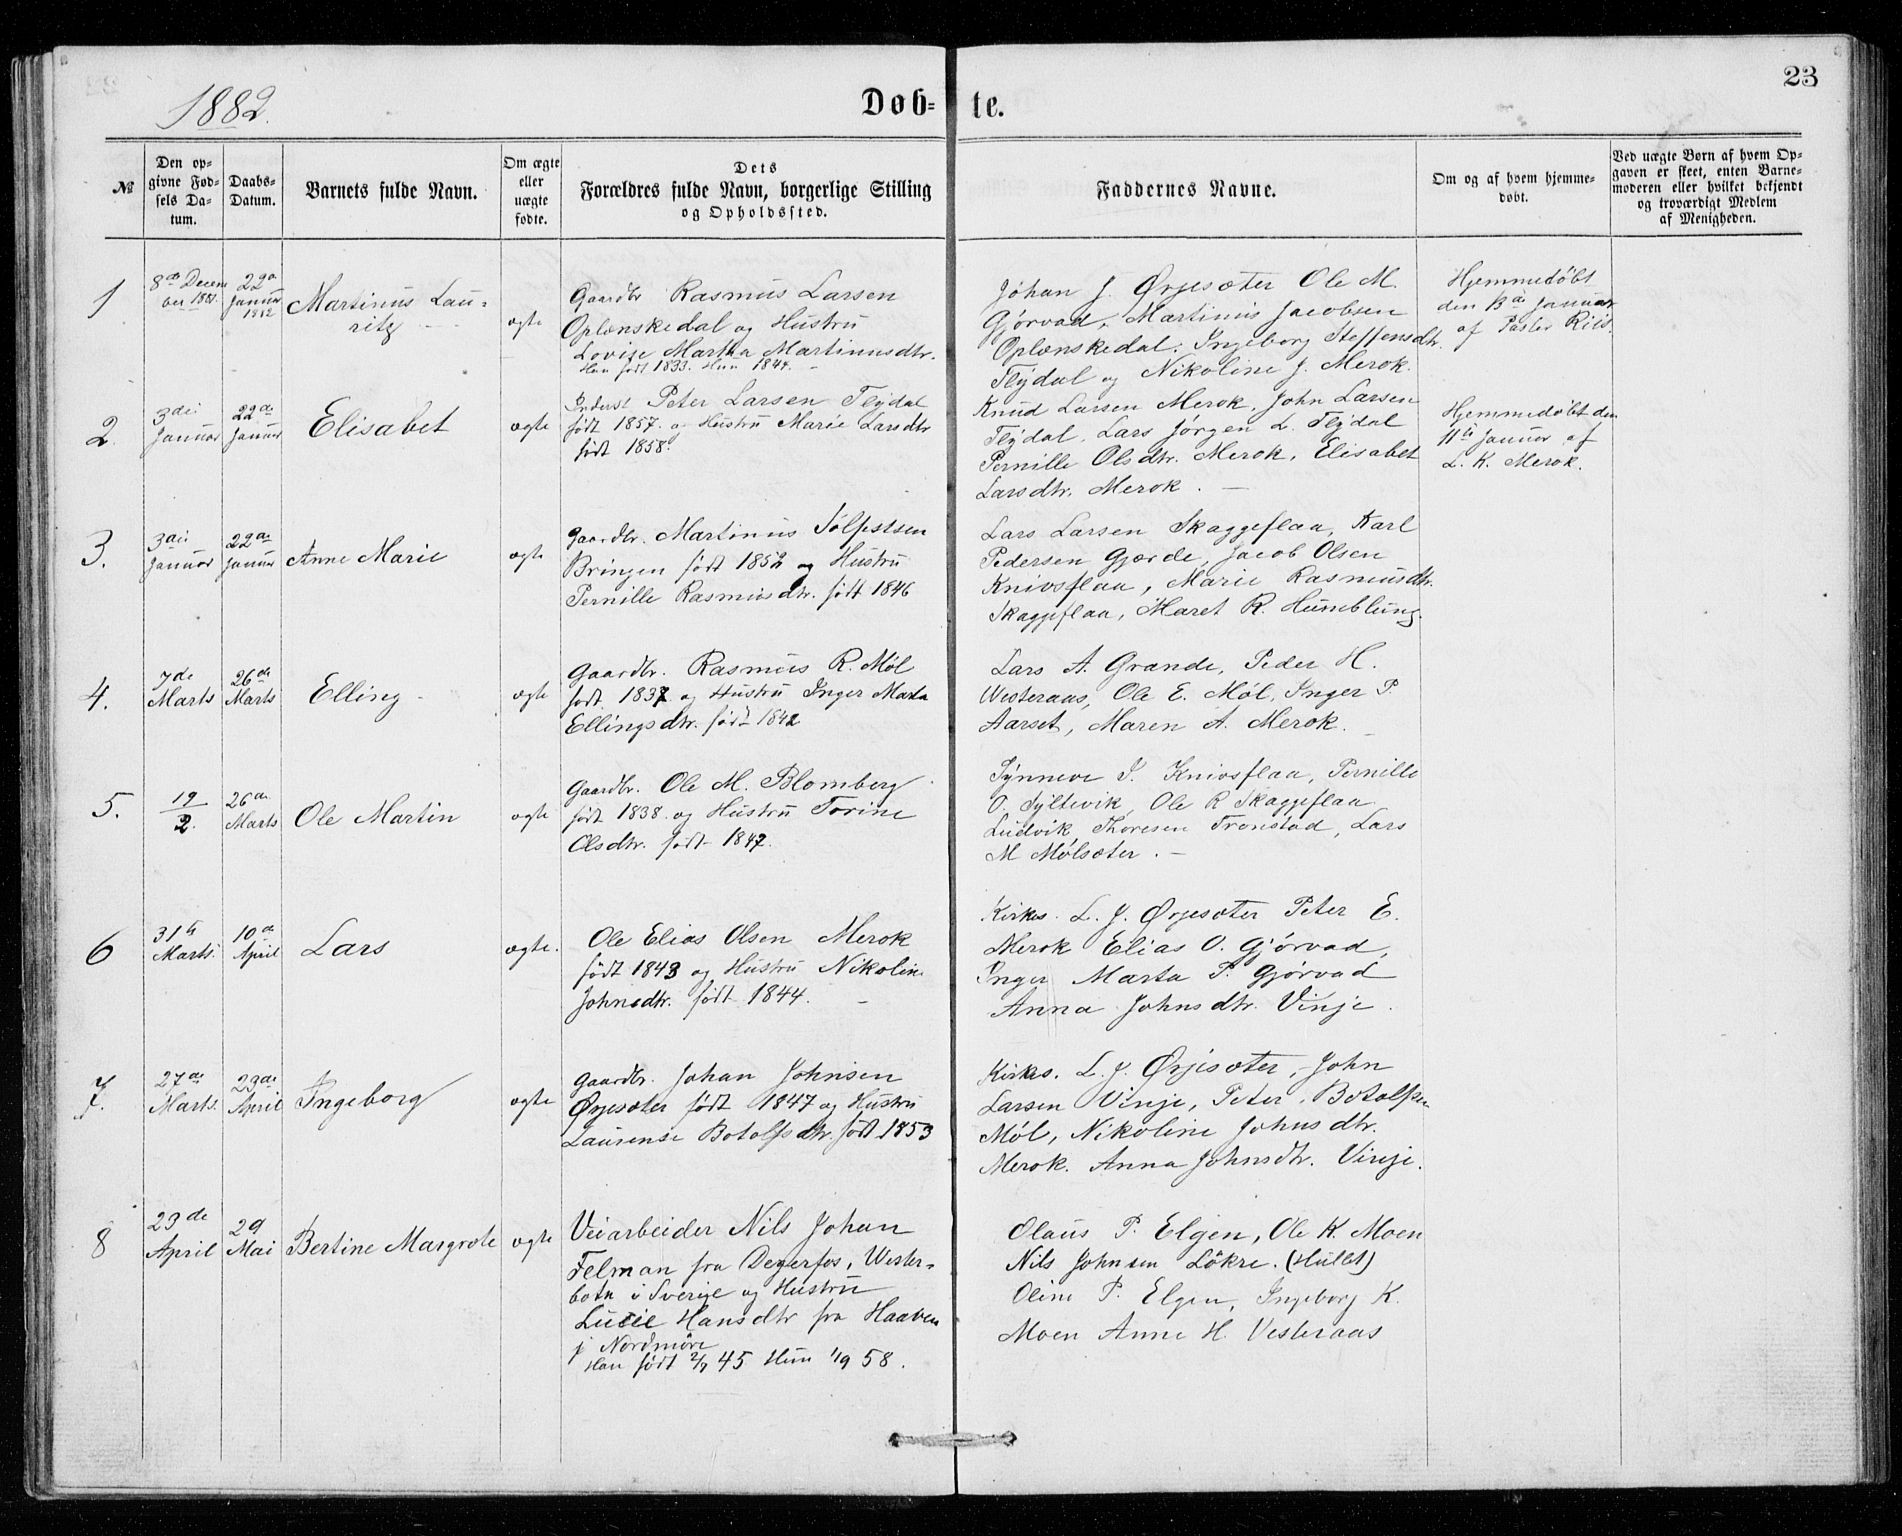 23
1882.
Døb-te.
№
Den opgivne Fødsels Datum.
Daabs-Datum.
Barnets fulde Navn.
Om ægte eller uægte fødte.
Dets Forældres fulde Navn, borgerlige Stilling og Opholdssted.
Faddernes Navne.
Om og af hvem hjemmedøbt.
Ved uægte Børn af hvem Opgaven er skeet, enten Barnemoderen eller hvilket bekjendt og troværdigt Medlem af Menigheden.
1
8de Decem
ber 1881.
22de
Januar
1882
Martinus Lau-
ritz
ægte
Gaardbr Rasmus Larsen
Oplænskedal og Hustru
Lovise Martha Martinusdtr.
Han født 1833. Hun 1844.
Johan J. Ørjesæter Ole M.
Gjørvad, Martinus Jacobsen
Oplænskedal. Ingeborg Steffensdtr.
Flydal og Nikoline J. Merok.
Hjemmedøbt
den 13de Januar
af Pastor Riis.
2.
3die
Januar
22de
Januar
Elisabet
ægte
Inderst Peter Larsen Flydal
født 1857. og Hustru Marie Larsdtr
født 1858.
Knud Larsen Merok, John Larsen
Flydal, Lars Jørgen L. Flydal
Pernille Olsdtr. Merok, Elisabet
Larsdtr. Merok.
Hjemmedøbt den
11te Januar af
L. K. Merok.
3.
3die
Januar
22de
Januar
Anne Marie
ægte
Gaardbr. Martinus Sølfestsen
Bringen født 1852 og Hustru
Pernille Rasmusdtr. født 1846
Lars Larsen Skaggeflaa, Karl
Pedersen Gjærde, Jacob Olsen
Knivsflaa, Marie Rasmusdtr.
Skaggeflaa, Maret R. Humblung.
4.
7de
Marts
26de
Marts
Elling
ægte
Gaardbr. Rasmus R. Møl
født 1837 og Hustru Inger Marta
Ellingsdtr. født 1842
Lars A. Grande, Peder H.
Westeraas, Ole E. Møl, Inger P.
Aarset, Maren A. Merok.
5.
19/2.
26de
Marts
Ole Martin
ægte
Gaardbr. Ole M. Blomberg
født 1838. og Hustru Torine
Olsdtr. født 1847.
Synneve I. Knivsflaa, Pernille
O. Syltevik, Ole R Skaggeflaa
Ludvik Thoresen Tronstad, Lars
M Mølsæter.
6
31te
Marts.
10de
April
Lars
ægte.
Ole Elias Olsen Merok
født 1843 og Hustru Nikoline
Johnsdtr. født 1844.
Kirkes. L. J. Ørjesæter Peter E.
Merok Elias O. Gjørvad,
Inger Marta P. Gjørvad
Anna Johnsdtr. Vinje.
7.
27de
Marts.
23de
April
Ingeborg
ægte
Gaardbr. Johan Johnsen
Ørjesæter født 1847 og Hustru
Laurense Botolfsdtr. født 1853
Kirkes. L. J. Ørjesæter, John
Larsen Vinje, Peter Botolfsen
Møl, Nikoline Johnsdtr.
Merok. Anna Johnsdtr. Vinje.
8
23de
April
29
Mai
Bertine Margrete
ægte
Veiarbeider Nils Johan
Felman fra Degerfos, Wester-
botn i Sverige og Hustru
Lucie Hansdtr fra Haaven
j Nordmøre
Han født 2/7 45 Hun 1/9 58.
Olaus P. Elgen, Ole K. Moen
Nils Johnsen Løkre. (Hullet)
Oline P. Elgen, Ingeborg K.
Moen Anne H. Vesteraas